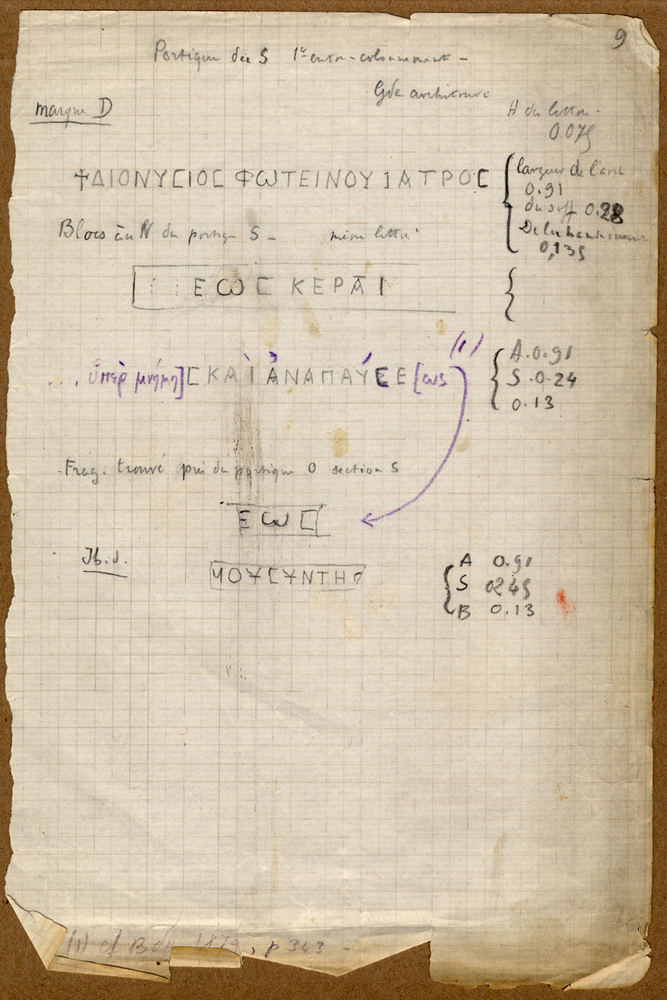 9
Portique du S 1er entre-colonnement -
Gde architrave
marque D
H des lettres.
0.075
†ΔΙΟΝΥCΙΟC ΦΩΤΕΙΝΟΥ ΙΑΤΡΟC
largeur de l'arch
0.91
du soff 0.28
De la bande
0,135
Blocs au N du portique S - même lettre
ΕΩC ΚΕΡΑΙ
(1)
... ὑπὲρ μνήμη]C ΚΑῚ ἈΝΑΠΑΎCΕ[ως
A. 0.91
S. 0.24
0.13
Frag. trouvé près du portique O section S
ΕΩC
Ib. d.
ΜΟΥCΥΝΤΗC
A 0.91
S 0245
B 0.13
(1) cf BCH 1879, p 343 -